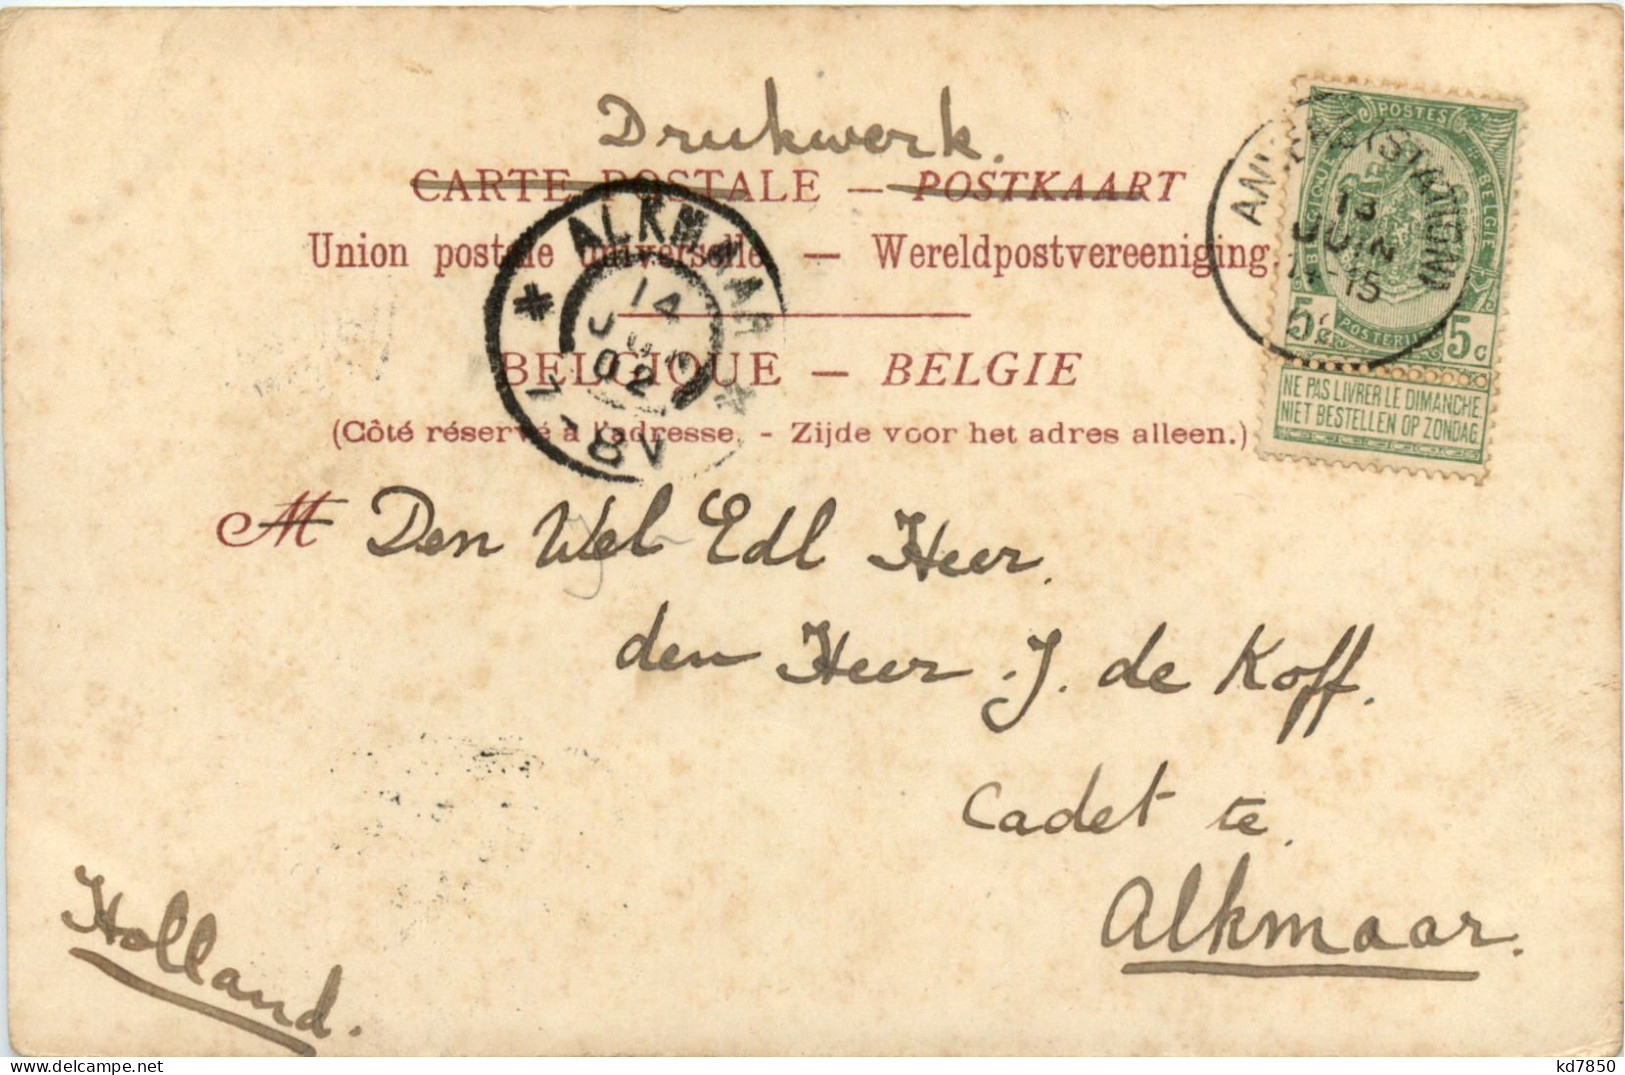 Drukwerk.
CARTE POSTALE — POSTKAART
Union postale universelle — Wereldpostvereeniging.
BELGIQUE — BELGIE
(Côté réservé à l'adresse. - Zijde voor het adres alleen.)
ALKMAAR
14
JUN
02
7-8V
POSTES
BELGIQUE BELGIË
(STATION)
13
JUIN
15
5c POSTERIJEN 5c
NE PAS LIVRER LE DIMANCHE
NIET BESTELLEN OP ZONDAG
M Den Wel Edl Heer.
den Heer J. de Koff.
Cadet te
Alkmaar.
Holland.
kd7850